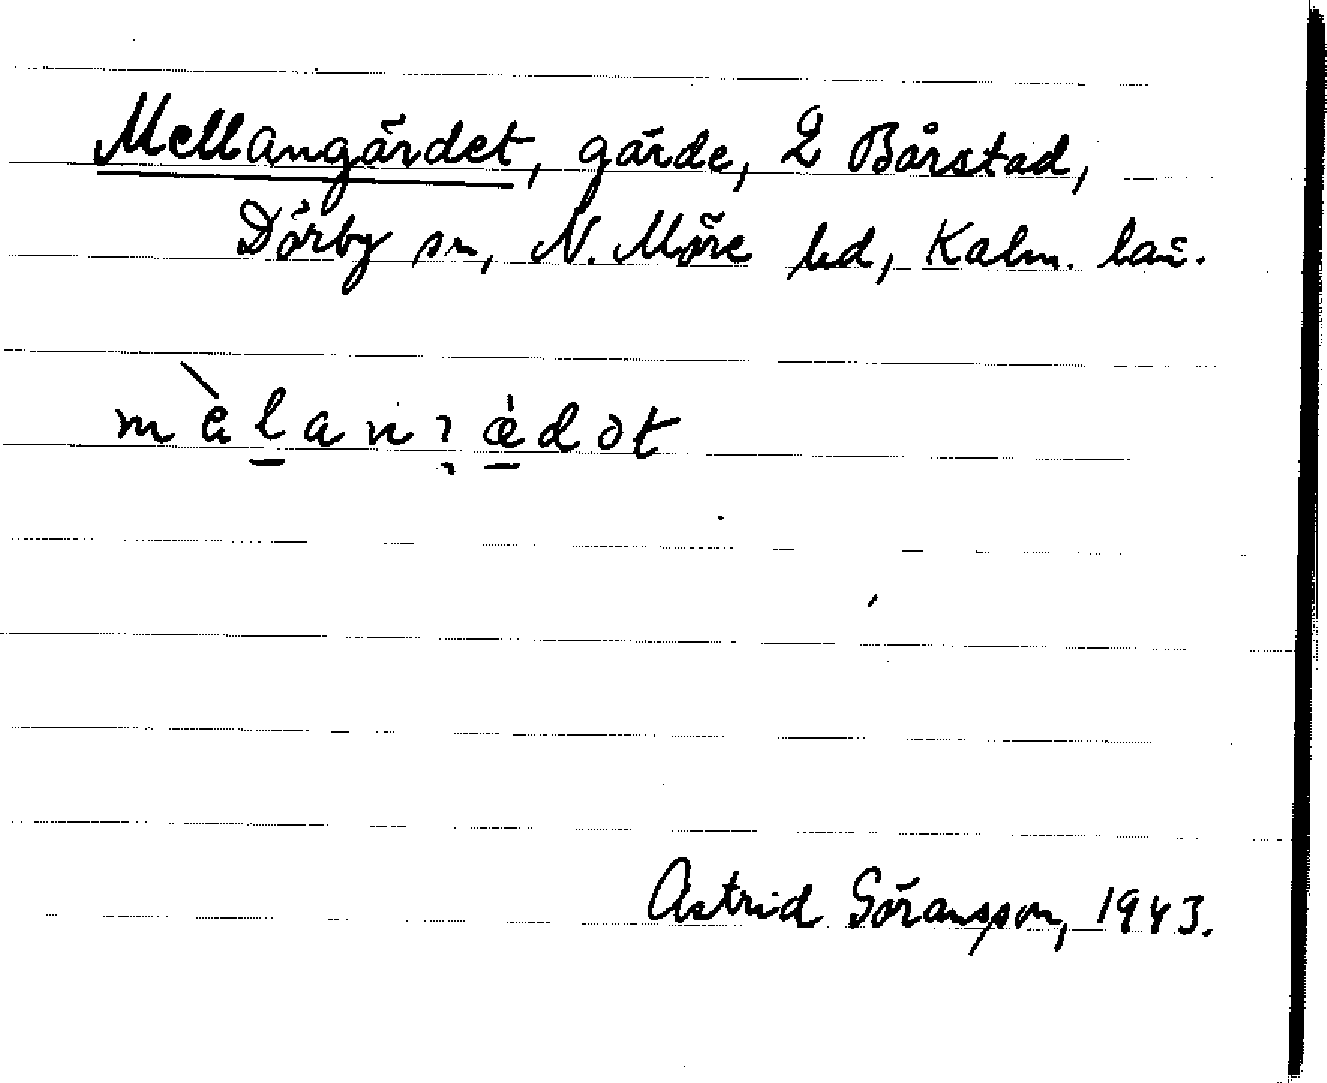 Mellangärdet, gärde, 2 Bårstad,
Dörby sn, N. Möre hd, Kalm. län.
Astrid Göransson, 1943.